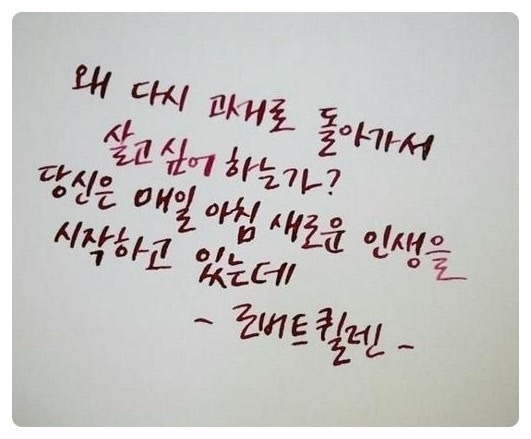 왜 다시 과거로 돌아가서
살고 싶어 하는가?
당신은 매일 아침 새로운 인생을
시작하고 있는데
- 로버트 퀼렌 -